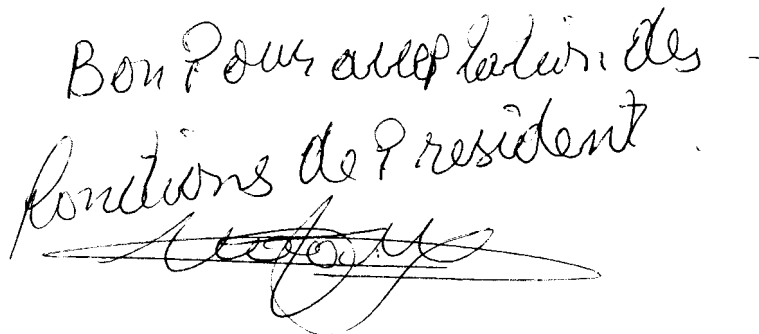 Bon Pour acceptation des
fonctions de President